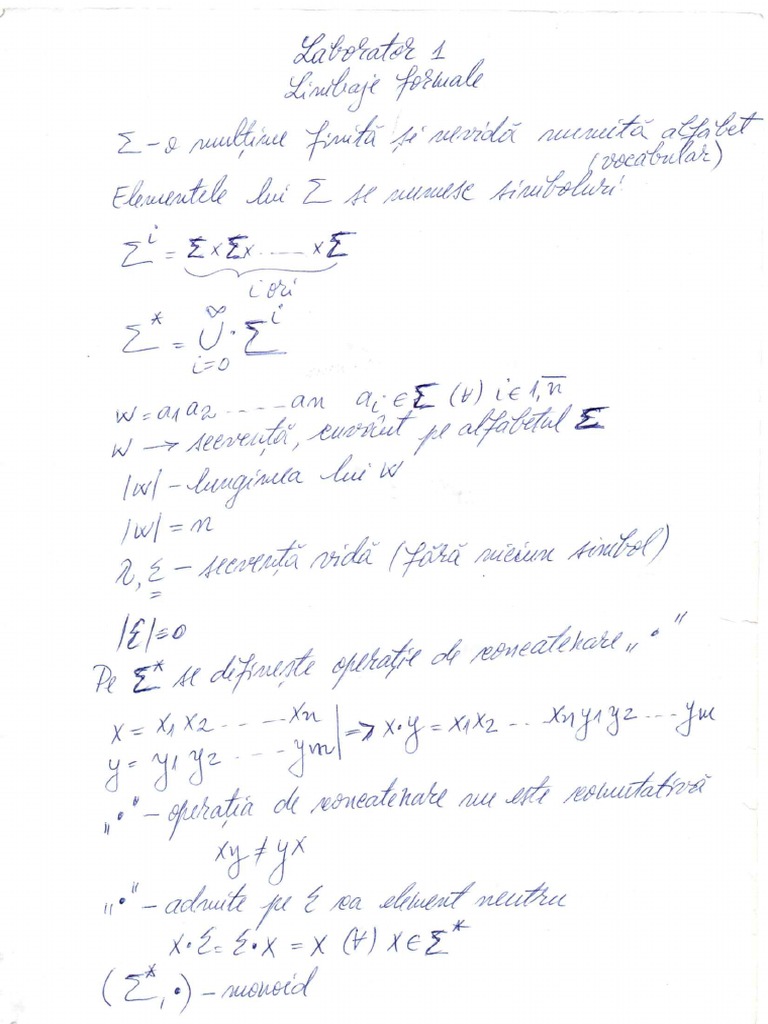 Laborator 1
Limbaje formale
Σ – o mulțime finită și nevidă numită alfabet
(vocabular)
Elementele lui Σ se numesc simboluri
Σ^i = Σ x Σ x ...... x Σ
i ori
Σ* = ∞ ∪ i=0 · Σ^i
w = a1 a2 ...... an   ai ∈ Σ (∀) i ∈ 1,n̅
w → secvență, cuvânt pe alfabetul Σ
|w| – lungimea lui w
|w| = n
λ, ε – secvență vidă (fără niciun simbol)
|ε| = 0
Pe Σ* se definește operație de concatenare „·"
x = x1 x2 ...... xn | => x·y = x1x2 ... xn y1 y2 .... ym
y = y1 y2 ..... ym |
„·" – operația de concatenare nu este comutativă
xy ≠ yx
„·" – admite pe ε ca element neutru
x·ε = ε·x = x (∀) x ∈ Σ*
(Σ*, ·) – monoid